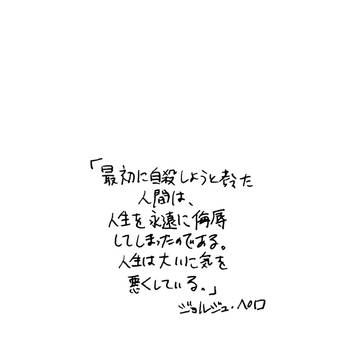 「最初に自殺しようと考えた
人間は、
人生を永遠に侮辱
してしまったのである。
人生は大いに気を
悪くしている。」
ジョルジュ・ペロ